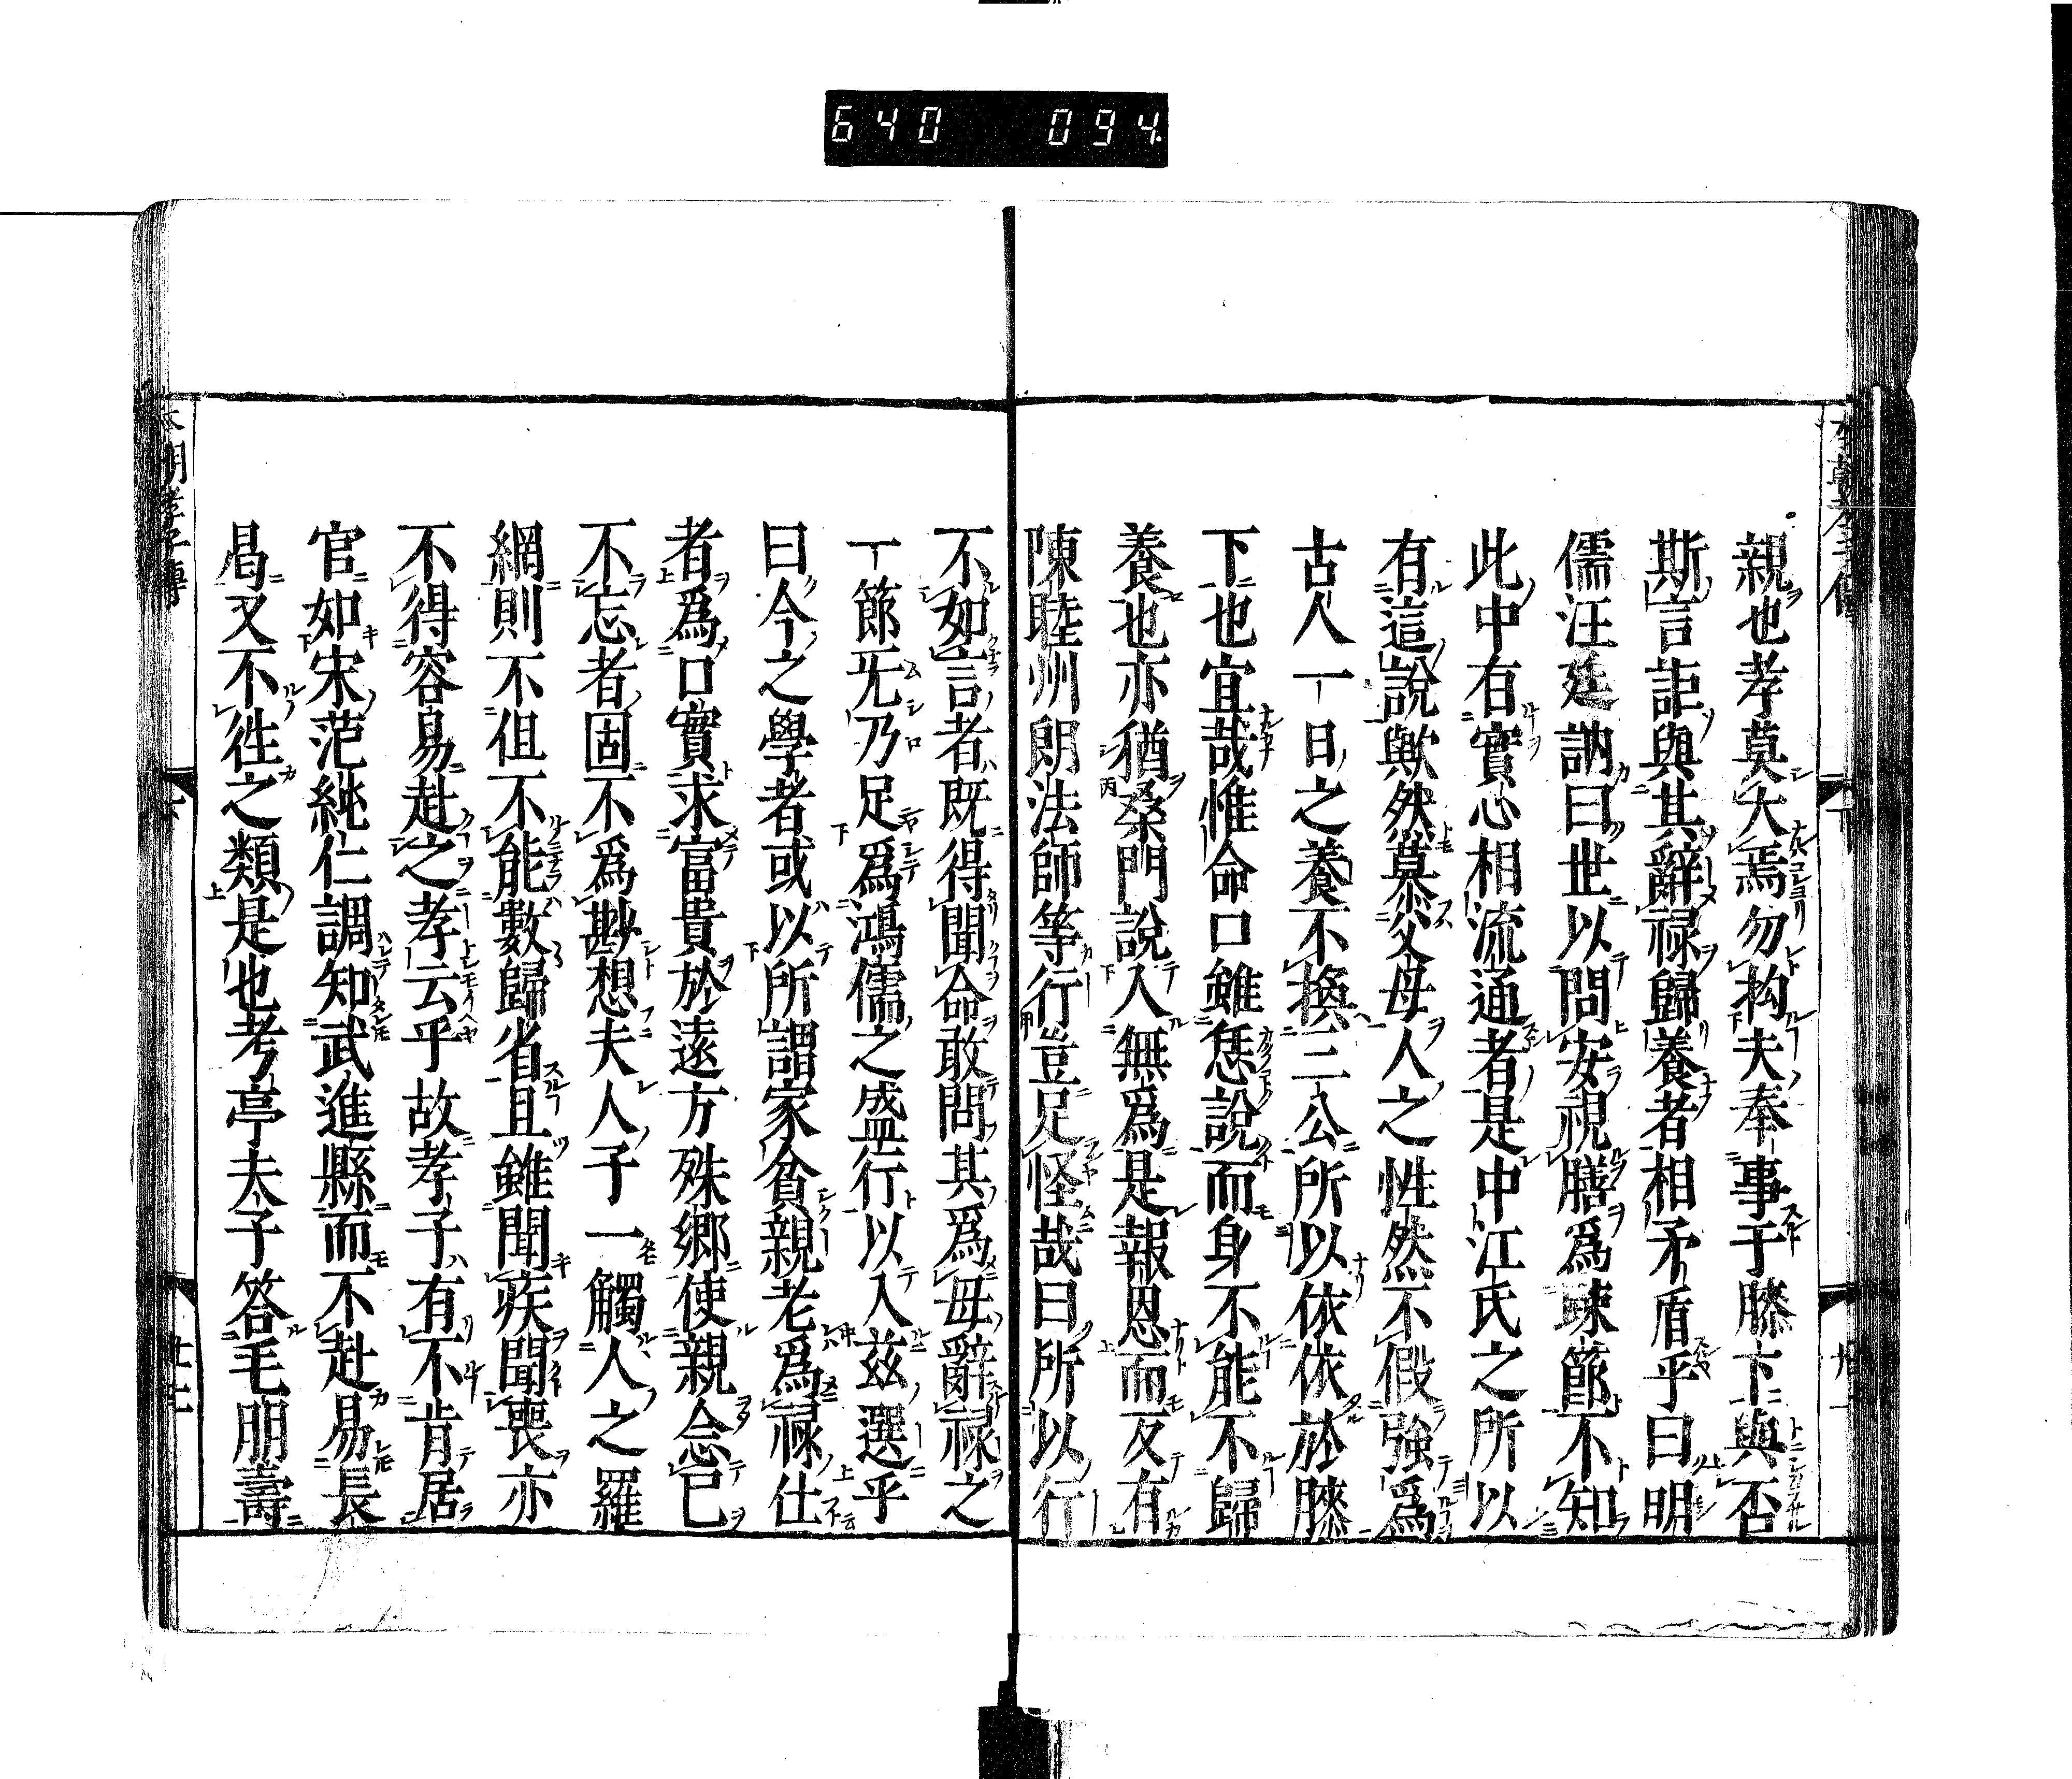 640 094
親也孝莫大焉勿拘夫奉事于膝下與否
斯言詎與其辭祿歸養者相矛盾乎曰明
儒汪廷訥曰世以問安視膳爲疎節不知
此中有實心相流通者是中江氏之所以
有這說歟然慕父母人之性然不假強爲
古人一日之養不換三公所以依依於膝
下也宜哉惟命口雖恁說而身不能不歸
養也亦猶桑門說入無爲是報恩而反有
陳睦州朗法師等行豈足怪哉曰所以行
不如言者既得聞命敢問其爲母辭祿之
一節无乃足爲鴻儒之盛行以入茲選乎
曰今之學者或以所謂家貧親老爲祿仕
者爲口實求富貴於遠方殊鄉使親念已
不忘者固不爲尠想夫人子一觸人之羅
網則不但不能數歸省且雖聞疾聞喪亦
不得容易赴之孝云乎故孝子有不肯居
官如宋范純仁調知武進縣而不赴易長
昌又不往之類是也考亭夫子答毛朋壽
本朝孝子傳
下
廿二